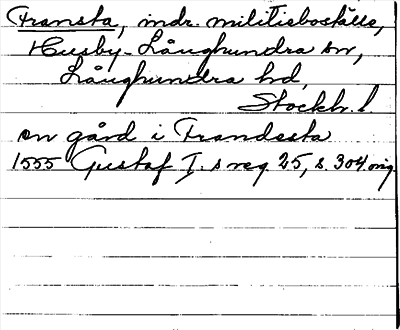 Fransta, indr. militieboställe,
Husby-Långhundra sn,
Långhundra hd,
Stockh. l.
en gård i Frandesta
1555 Gustaf I.s reg. 25, s. 304 orig.